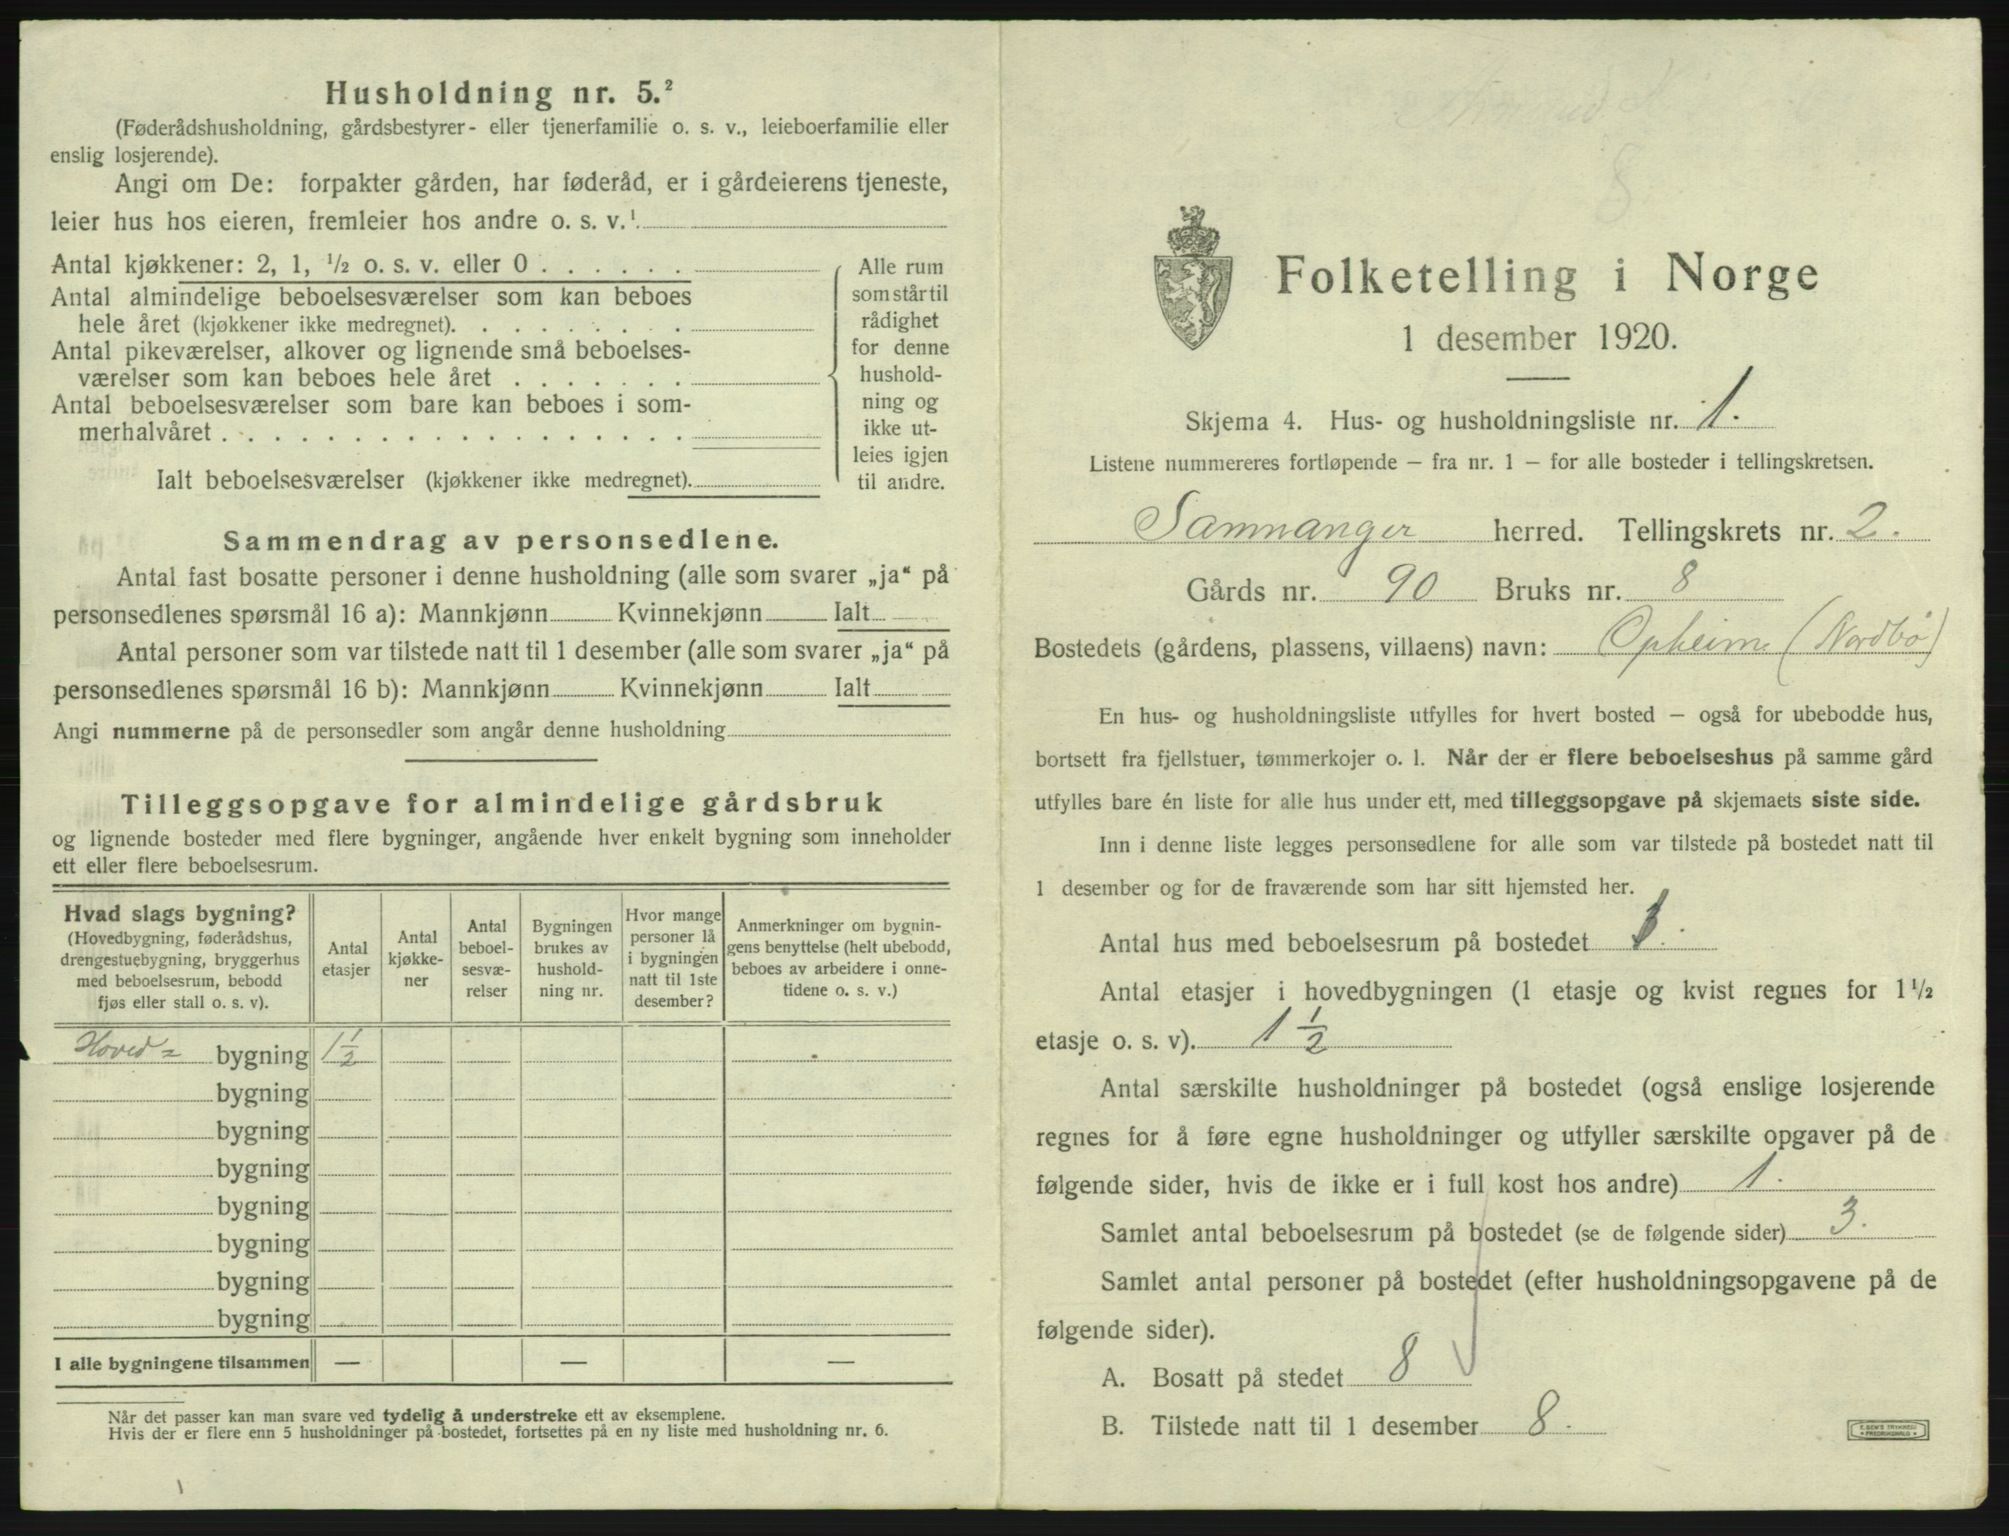 Husholdning nr. 5.²
(Føderådshusholdning, gårdsbestyrer- eller tjenerfamilie o. s. v., leieboerfamilie eller
enslig losjerende).
Angi om De: forpakter gården, har føderåd, er i gårdeierens tjeneste,
leier hus hos eieren, fremleier hos andre o. s. v.¹
Antal kjøkkener: 2, 1, ½ o. s. v. eller 0 . . . . . .
Antal almindelige beboelsesværelser som kan beboes
hele året (kjøkkener ikke medregnet). . . . . . . . .
Antal pikeværelser, alkover og lignende små beboelses-
værelser som kan beboes hele året . . . . . . .
Antal beboelsesværelser som bare kan beboes i som-
merhalvåret . . . . . . . . . . . . . . . . . .
Ialt beboelsesværelser (kjøkkener ikke medregnet).
Alle rum
som står til
rådighet
for denne
hushold-
ning og
ikke ut-
leies igjen
til andre.
Sammendrag av personsedlene.
Antal fast bosatte personer i denne husholdning (alle som svarer „ja“ på
personsedlenes spørsmål 16 a): Mannkjønn Kvinnekjønn Ialt
Antal personer som var tilstede natt til 1 desember (alle som svarer „ja“ på
personsedlenes spørsmål 16 b): Mannkjønn Kvinnekjønn Ialt
Angi nummerne på de personsedler som angår denne husholdning
Tilleggsopgave for almindelige gårdsbruk
og lignende bosteder med flere bygninger, angående hver enkelt bygning som inneholder
ett eller flere beboelsesrum.
Hvad slags bygning?
(Hovedbygning, føderådshus,
drengestuebygning, bryggerhus
med beboelsesrum, bebodd
fjøs eller stall o. s. v).
Antal
etasjer
Antal
kjøkke-
ner
Antal
beboel-
sesvæ-
relser
Bygningen
brukes av
hushold-
ning nr.
Hvor mange
personer lå
i bygningen
natt til 1ste
desember?
Anmerkninger om bygnin-
gens benyttelse (helt ubebodd,
beboes av arbeidere i onne-
tidene o. s. v.)
Hoved= bygning 1½
bygning
bygning
bygning
bygning
bygning
bygning
bygning
I alle bygningene tilsammen — — —
Når det passer kan man svare ved tydelig å understreke ett av eksemplene.
Hvis der er flere enn 5 husholdninger på bostedet, fortsettes på en ny liste med husholdning nr. 6.
Folketelling i Norge
1 desember 1920.
Skjema 4. Hus- og husholdningsliste nr. 1.
Listene nummereres fortløpende – fra nr. 1 – for alle bosteder i tellingskretsen.
Samnanger herred. Tellingskrets nr. 2.
Gårds nr. 90 Bruks nr. 8
Bostedets (gårdens, plassens, villaens) navn: Opheim (Nordbø)
En hus- og husholdningsliste utfylles for hvert bosted – også for ubebodde hus,
bortsett fra fjellstuer, tømmerkojer o. l. Når der er flere beboelseshus på samme gård
utfylles bare én liste for alle hus under ett, med tilleggsopgave på skjemaets siste side.
Inn i denne liste legges personsedlene for alle som var tilstede på bostedet natt til
1 desember og for de fraværende som har sitt hjemsted her.
Antal hus med beboelsesrum på bostedet 1.
Antal etasjer i hovedbygningen (1 etasje og kvist regnes for 1½
etasje o. s. v). 1½
Antal særskilte husholdninger på bostedet (også enslige losjerende
regnes for å føre egne husholdninger og utfyller særskilte opgaver på de
følgende sider, hvis de ikke er i full kost hos andre) 1.
Samlet antal beboelsesrum på bostedet (se de følgende sider) 3.
Samlet antal personer på bostedet (efter husholdningsopgavene på de
følgende sider).
A. Bosatt på stedet 8
B. Tilstede natt til 1 desember 8.